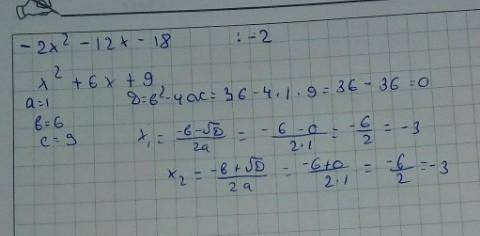 -2x² - 12x - 18 : -2
x² + 6x + 9
a=1 D=b²-4ac = 36 - 4·1·9 = 36 - 36 = 0
b=6
c=9 x₁ = (-b-√D)/2a = (-6-0)/2·1 = -6/2 = -3
x₂ = (-b+√D)/2a = (-6+0)/2·1 = -6/2 = -3